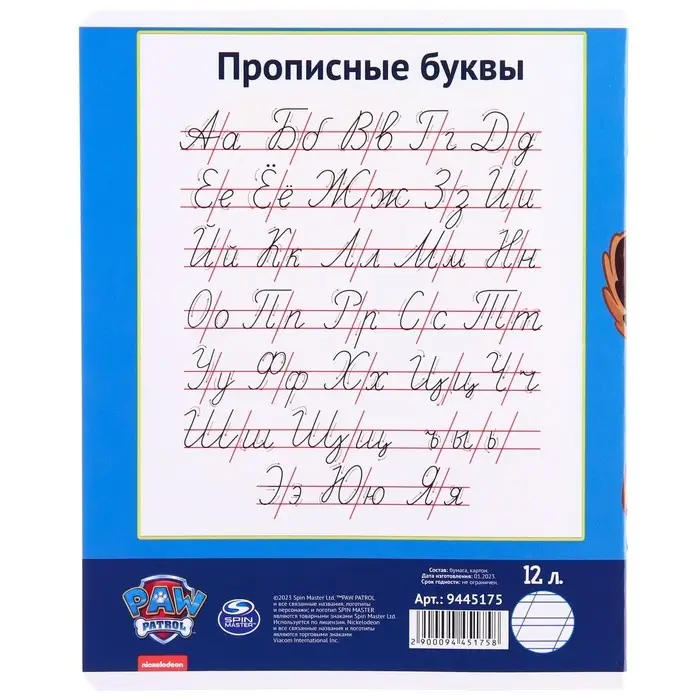 Прописные буквы
Аа Бб Вв Гг Дд
Ее Ёё Жж Зз Ии
Йй Кк Лл Мм Нн
Оо Пп Рр Сс Тт
Уу Фф Хх Цц Чч
Шш Щщ ъ ы ь
Ээ Юю Яя
PAW
PATROL
nickelodeon
SPIN
MASTER
©2023 Spin Master Ltd. ™PAW PATROL
и все связанные названия, логотипы
и персонажи; и логотип SPIN MASTER
являются товарными знаками Spin Master Ltd.
Используется по лицензии. Nickelodeon
и все связанные названия и логотипы
являются торговыми знаками
Viacom International Inc.
Состав: бумага, картон.
Дата изготовления: 01.2023.
Срок годности: не ограничен.
Арт.: 9445175
2 900094 451758
12 л.